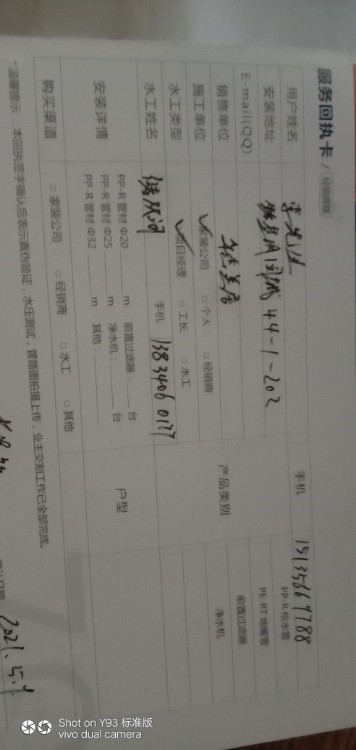 服务回执卡 / 经销商联
用户姓名 李先生 手机 15135667788
安装地址 44-1-202 PP-R给水管
E-mail(QQ) PE-RT地暖管
销售单位 产品类别 前置过滤器
施工单位 ✓家装公司 □个人 □经销商 净水机
水工类型 ✓项目经理 □工长 □水工
水工姓名 手机 13834060177
安装详情 PP-R管材Φ20 m 前置过滤器: 台 户型
PP-R管材Φ25 m 净水机: 台
PP-R管材Φ32 m 其他:
购买渠道 □家装公司 □经销商 □水工 □其他
*温馨提示:本回执签字确认后表示真伪验证,水压测试,管路图拍摄上传,业主交割工作已全部完成。
2021.5.
Shot on Y93 标准版
vivo dual camera